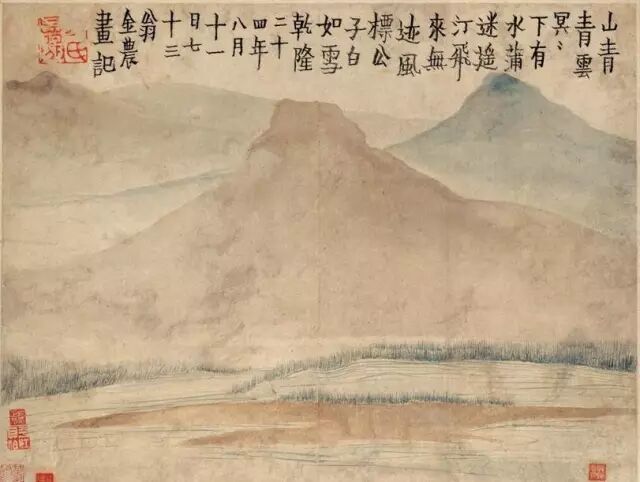 山青
青雲
冥〻
下有
水蒲
迷遥
汀飛
來無
迹風
標公
子白
如雪
乾隆
二十
四年
八月
十一
日七
十三
翁
金農
畫記